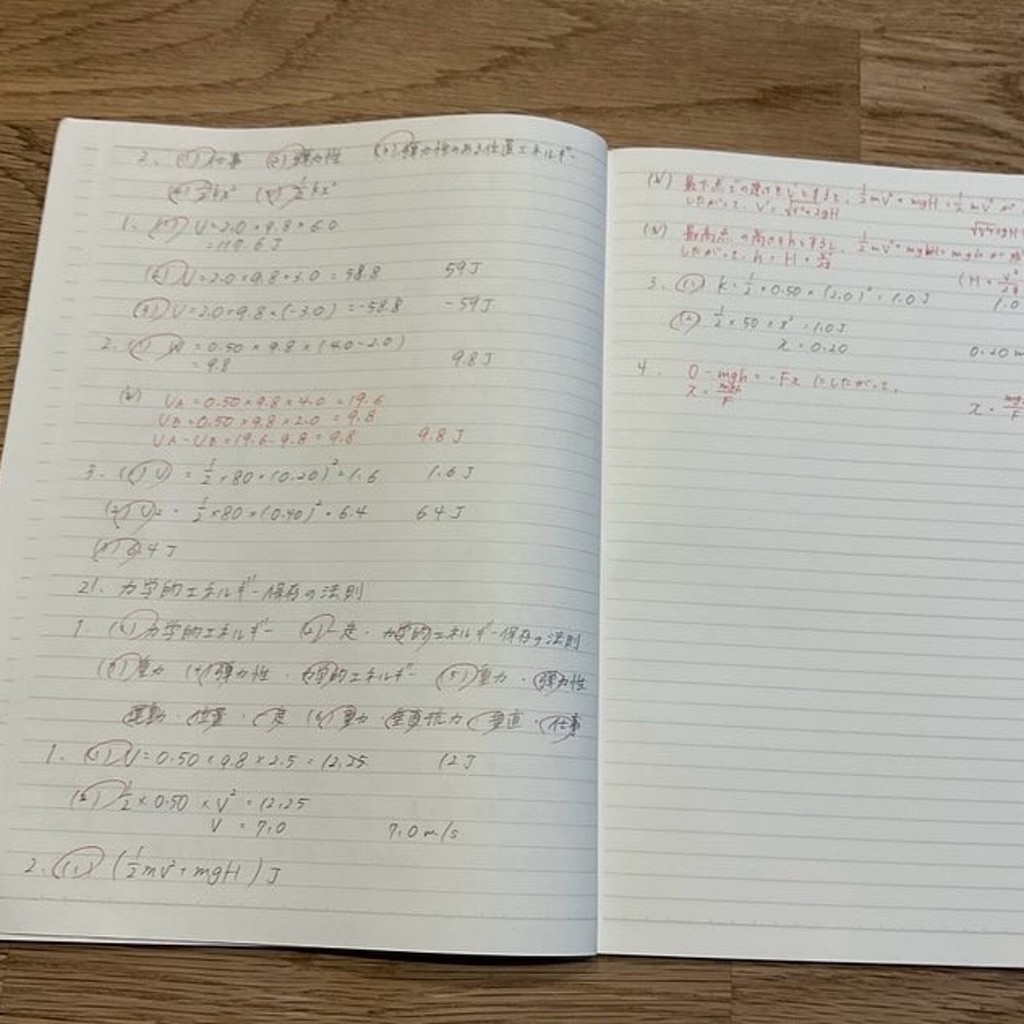 2. (1) 仕事 (2) 弾力性 (3) 弾力性のある位置エネルギー
(4) ½kx² (5) ½kx²
1. (1) U=2.0×9.8×6.0
=119.6J
(2) U=2.0×9.8×3.0=58.8 59J
(3) U=2.0×9.8×(-3.0)=-58.8 -59J
2. (1) W=0.50×9.8×(4.0-2.0)
=9.8 9.8J
(2)
UA=0.50×9.8×4.0=19.6
UB=0.50×9.8×2.0=9.8
UA-UB=19.6-9.8=9.8 9.8J
3. (1) U=½×80×(0.20)²=1.6 1.6J
(2) U₂=½×80×(0.40)²=6.4 6.4J
(3) 6.4J
21. 力学的エネルギー保存の法則
1. (1) 力学的エネルギー (2) 一定・力学的エネルギー保存の法則
(3) 重力 (4) 弾力性・力学的エネルギー (5) 重力・弾力性
運動・位置・一定 (6) 重力・垂直抗力・垂直・仕事
1. (1) U=0.50×9.8×2.5=12.25 12J
(2) ½×0.50×V²=12.25
V=7.0 7.0m/s
2. (1) (½mV²+mgH)J
(2) 最下点での速さをV'とすると、½mV²+mgH=½mV'²
したがって、V'=√V²+2gH
(3) 最高点の高さをhとすると、½mV²+mgH=mgh
したがって、h=H+V²/2g
3. (1) K=½×0.50×(2.0)²=1.0J 1.0
(2) ½×50×x²=1.0J
x=0.20 0.20m
4. 0-mgh=-Fx したがって、
x=mgh/F